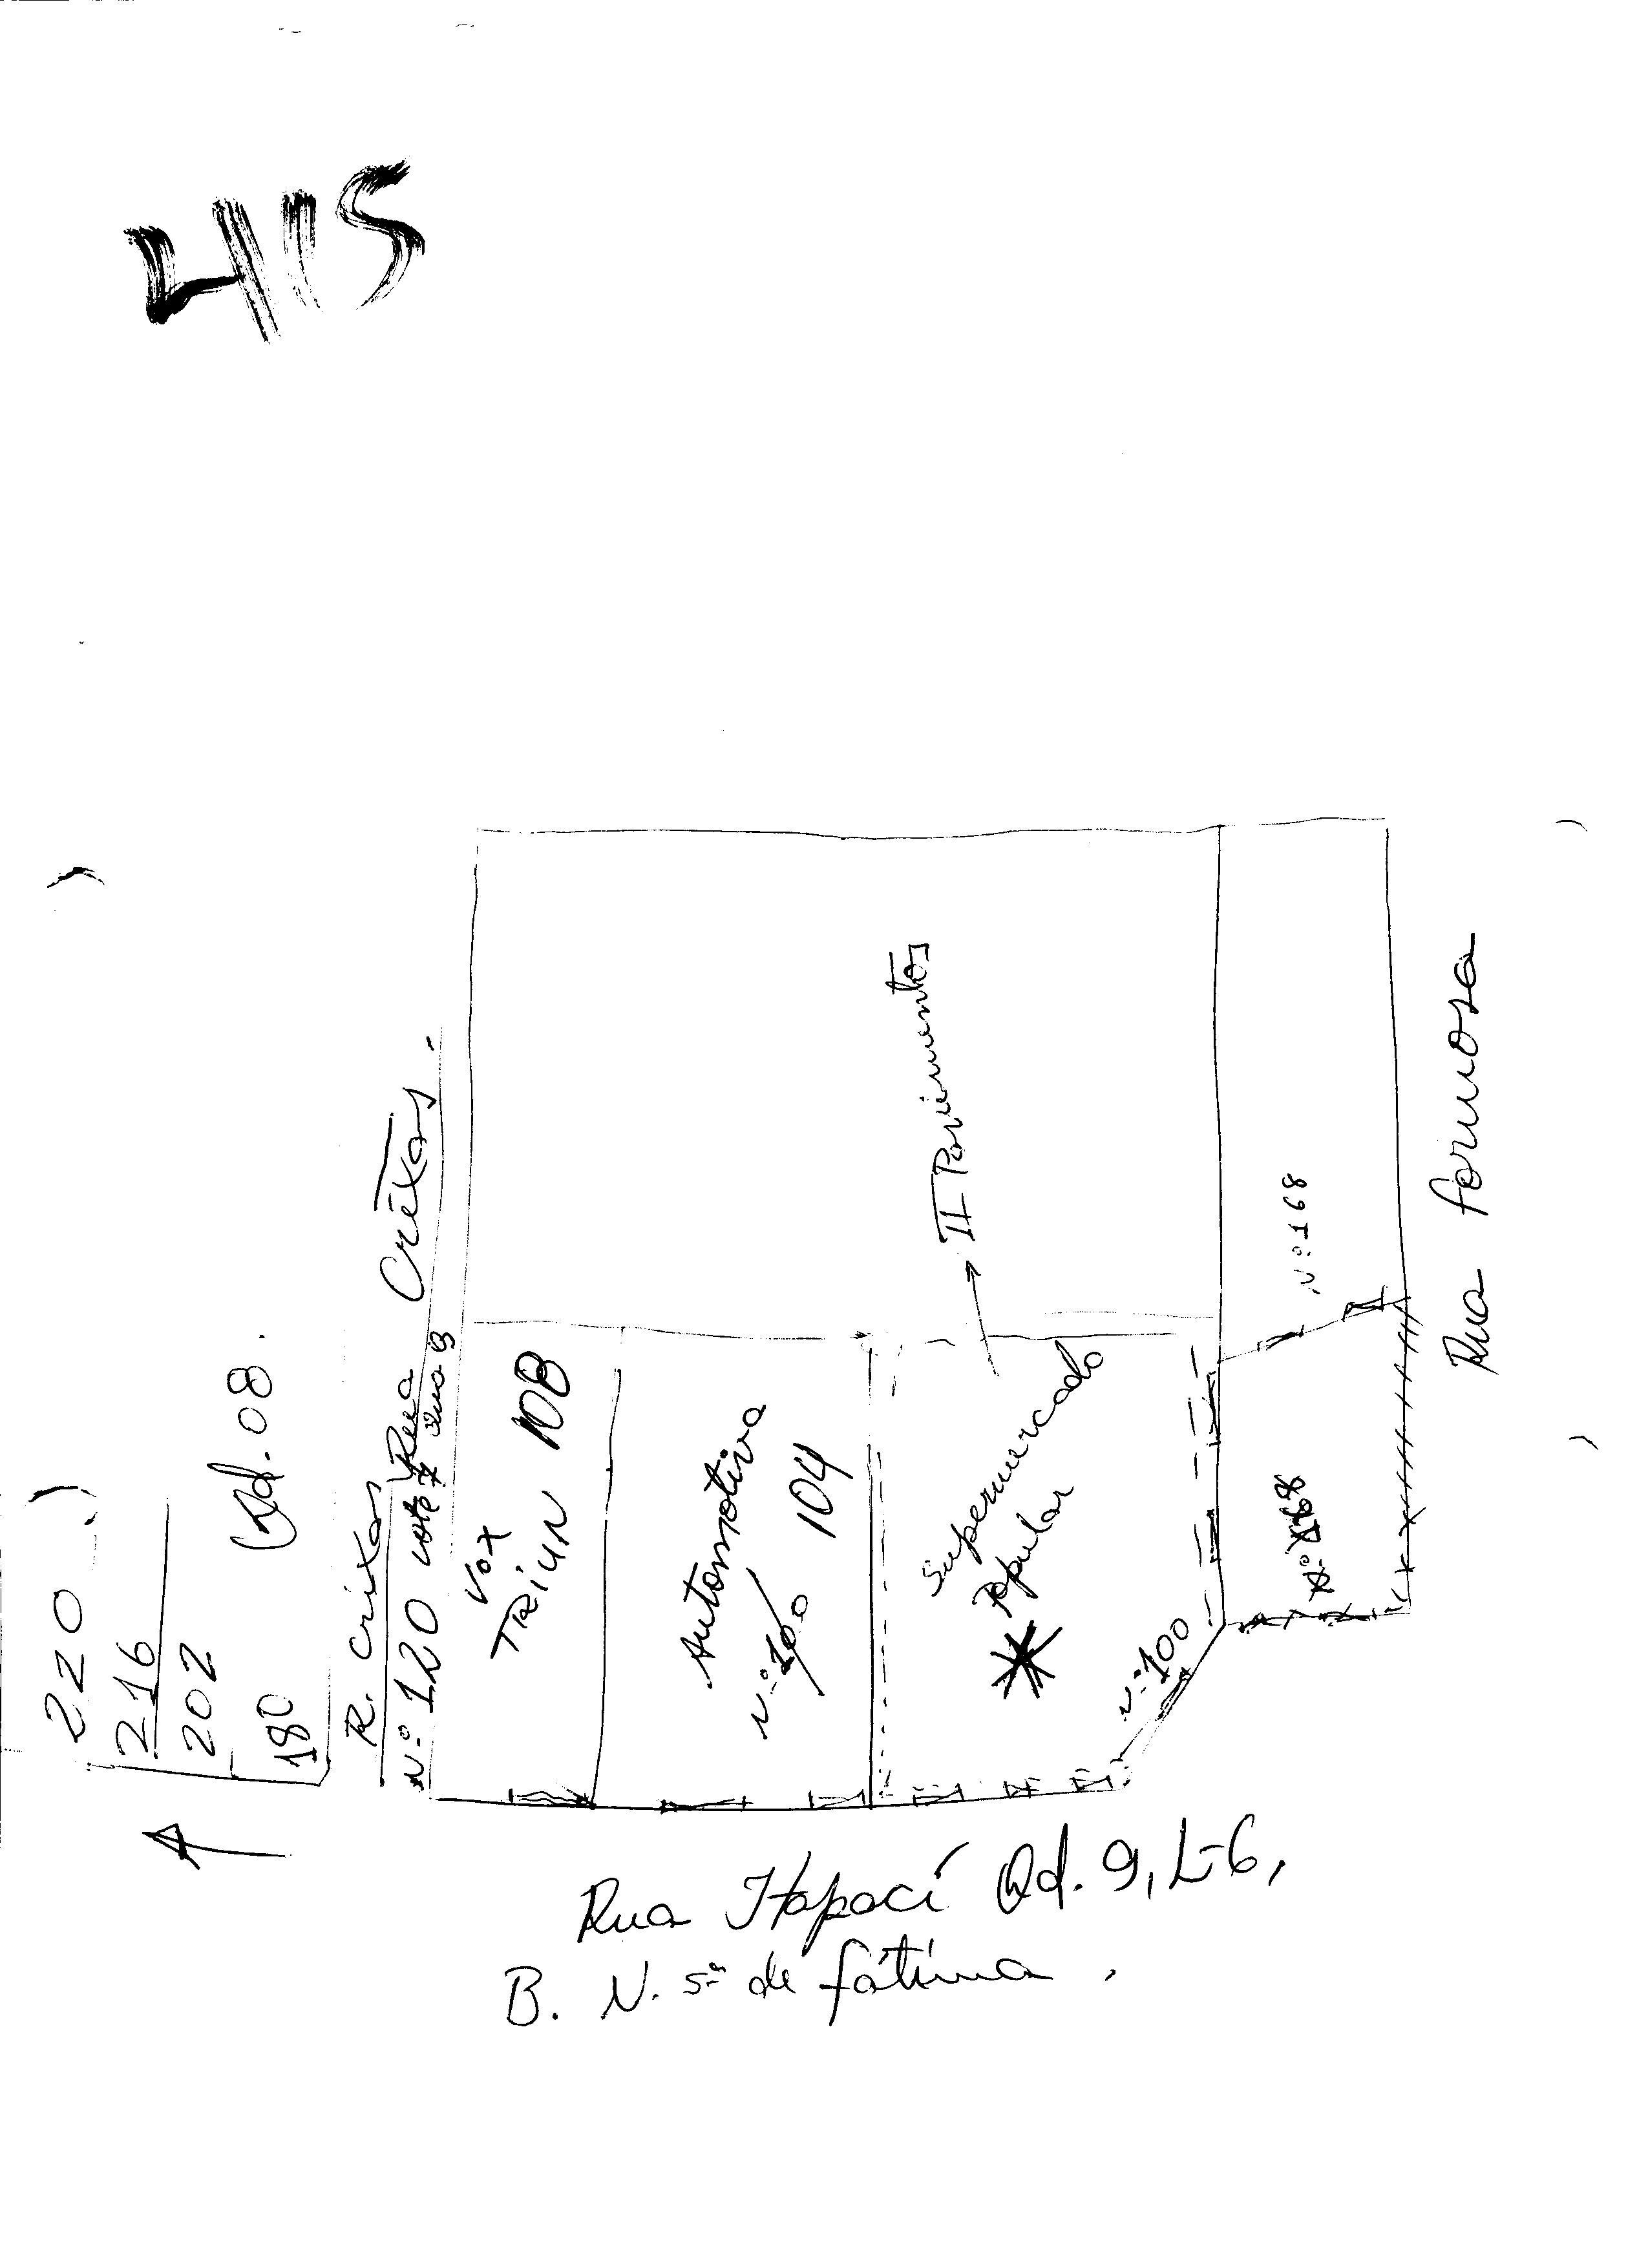 415
220
216
202
180
Qd. 08.
R. Crixas
Rua Crixás.
Nº 120
Vox
TRiun 108
Automotiva
Nº 100
104
Supermercado
Popular
II Pavimentos
Nº 100
Nº 168
Nº 168
Rua formosa
Rua Itapací Qd. 9, L-6,
B. N. Sª de fátima.